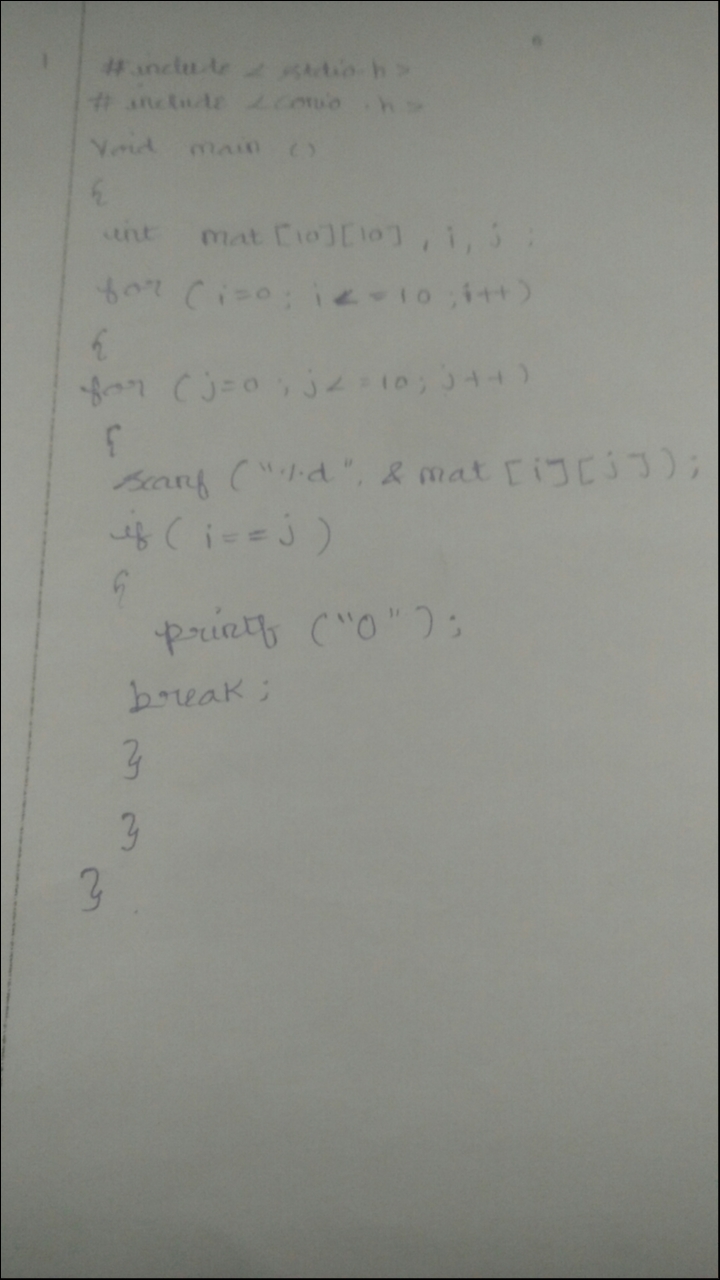 1 #include < stdio.h>
# include <conio .h>
void main ()
{
int mat [10][10] , i, j ;
for ( i=0; i<=10 ;i++)
{
for (j=0 ; j<=10; j++)
{
scanf ("%d", & mat [i][j]);
if ( i==j )
{
printf ("0");
break ;
}
}
}